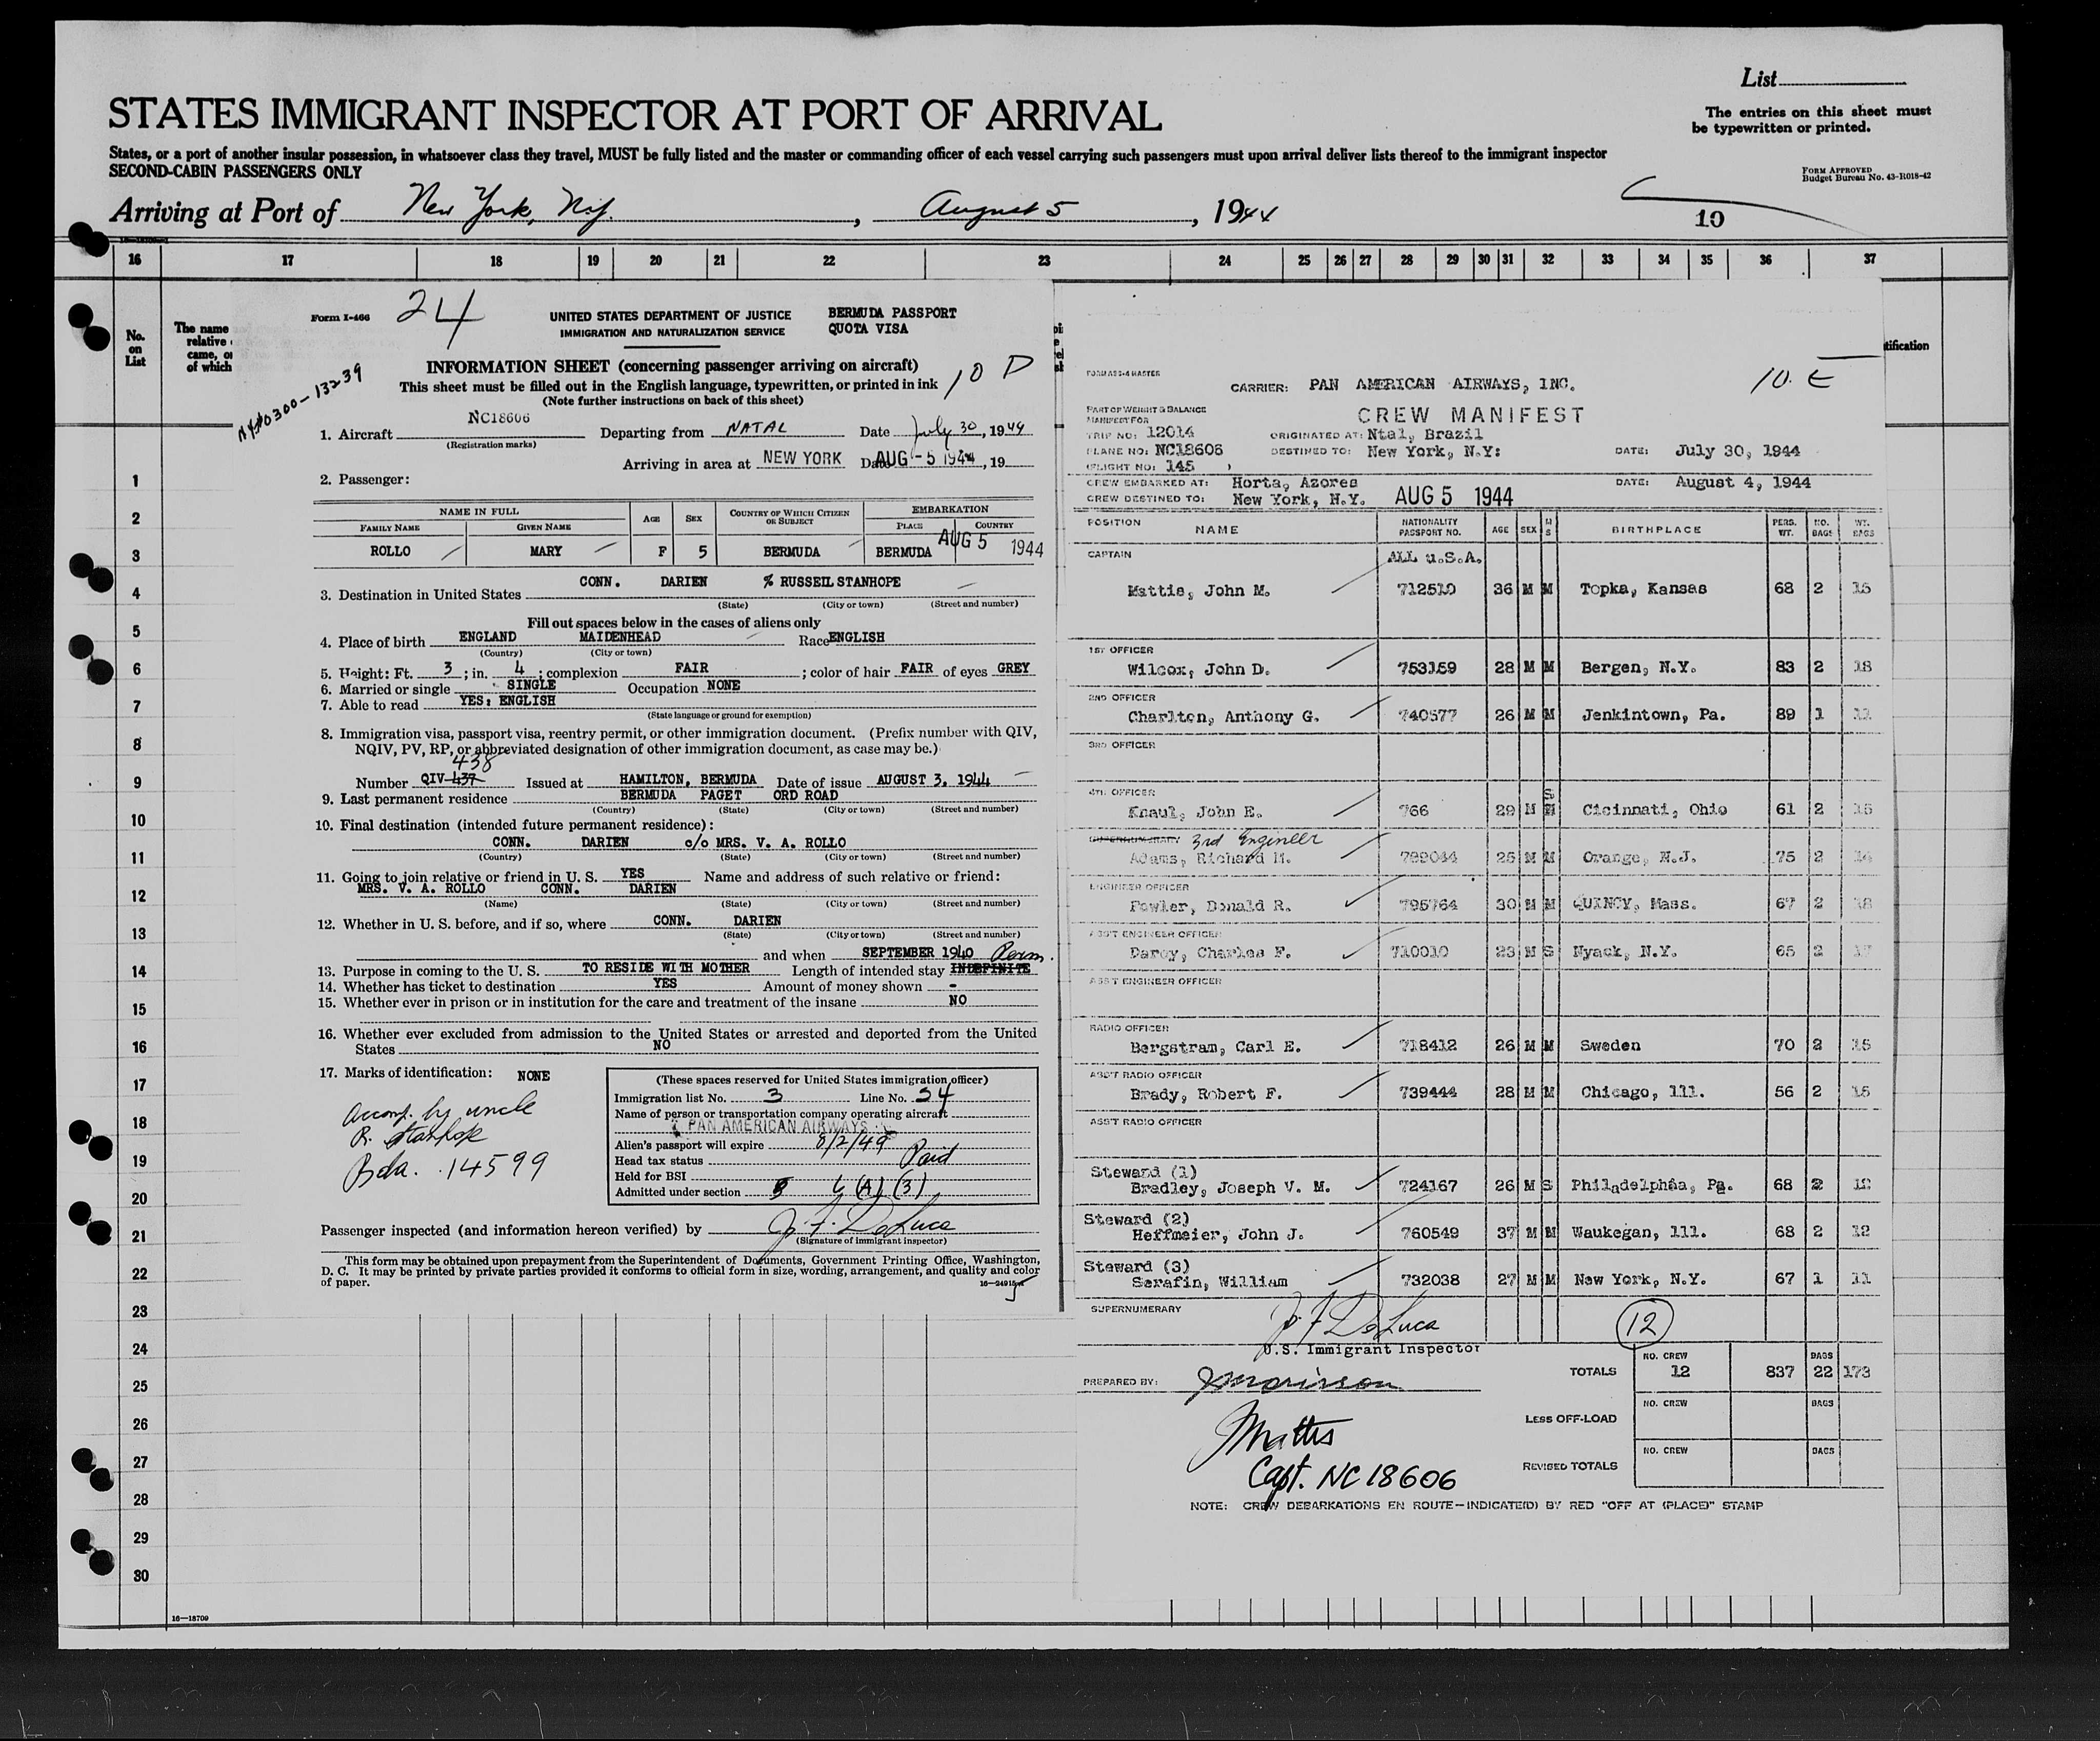 List
STATES IMMIGRANT INSPECTOR AT PORT OF ARRIVAL
The entries on this sheet must
be typewritten or printed.
States, or a port of another insular possession, in whatsoever class they travel, MUST be fully listed and the master or commanding officer of each vessel carrying such passengers must upon arrival deliver lists thereof to the immigrant inspector
SECOND-CABIN PASSENGERS ONLY
FORM APPROVED
Budget Bureau No. 43-R018-42
Arriving at Port of New York, N.Y. , August 5 , 1944
10
16 17 18 19 20 21 22 23 24 25 26 27 28 29 30 31 32 33 34 35 36 37
No.
on
List
The name
relative
came, or
of which
tification
1
2
3
4
5
6
7
8
9
10
11
12
13
14
15
16
17
18
19
20
21
22
23
24
25
26
27
28
29
30
16—18709
Form I-466
24
UNITED STATES DEPARTMENT OF JUSTICE
IMMIGRATION AND NATURALIZATION SERVICE
BERMUDA PASSPORT
QUOTA VISA
10 D
0300-13239
INFORMATION SHEET (concerning passenger arriving on aircraft)
This sheet must be filled out in the English language, typewritten, or printed in ink
(Note further instructions on back of this sheet)
1. Aircraft NC18606 Departing from NATAL Date July 30, 1944
(Registration marks)
Arriving in area at NEW YORK Date AUG -5 1944, 19
2. Passenger:
NAME IN FULL AGE SEX COUNTRY OF WHICH CITIZEN OR SUBJECT EMBARKATION
FAMILY NAME GIVEN NAME PLACE COUNTRY
AUG 5 1944
ROLLO MARY F 5 BERMUDA BERMUDA
3. Destination in United States CONN. DARIEN % RUSSEIL STANHOPE
(State) (City or town) (Street and number)
Fill out spaces below in the cases of aliens only
4. Place of birth ENGLAND MAIDENHEAD Race ENGLISH
(Country) (City or town)
5. Height: Ft. 3 ; in. 4 ; complexion FAIR ; color of hair FAIR of eyes GREY
6. Married or single SINGLE Occupation NONE
7. Able to read YES: ENGLISH
(State language or ground for exemption)
8. Immigration visa, passport visa, reentry permit, or other immigration document. (Prefix number with QIV,
NQIV, PV, RP, or abbreviated designation of other immigration document, as case may be.)
438
Number QIV 437 Issued at HAMILTON, BERMUDA Date of issue AUGUST 3, 1944
9. Last permanent residence BERMUDA PAGET ORD ROAD
(Country) (State) (City or town) (Street and number)
10. Final destination (intended future permanent residence):
CONN. DARIEN c/o MRS. V. A. ROLLO
(Country) (State) (City or town) (Street and number)
11. Going to join relative or friend in U. S. YES Name and address of such relative or friend:
MRS. V. A. ROLLO CONN. DARIEN
(Name) (State) (City or town) (Street and number)
12. Whether in U. S. before, and if so, where CONN. DARIEN
(State) (City or town) (Street and number)
and when SEPTEMBER 1940 Perm.
13. Purpose in coming to the U. S. TO RESIDE WITH MOTHER Length of intended stay INDEFINITE
14. Whether has ticket to destination YES Amount of money shown -
15. Whether ever in prison or in institution for the care and treatment of the insane NO
16. Whether ever excluded from admission to the United States or arrested and deported from the United
States NO
17. Marks of identification: NONE
Accomp. by uncle
R. Stanhope
Bda. 14599
(These spaces reserved for United States immigration officer)
Immigration list No. 3 Line No. 34
Name of person or transportation company operating aircraft
PAN AMERICAN AIRWAYS
Alien's passport will expire 8/2/49
Head tax status Paid
Held for BSI
Admitted under section 6 (A) (3)
Passenger inspected (and information hereon verified) by J. F. DeLuca
(Signature of immigrant inspector)
This form may be obtained upon prepayment from the Superintendent of Documents, Government Printing Office, Washington,
D. C. It may be printed by private parties provided it conforms to official form in size, wording, arrangement, and quality and color
of paper.
16—24915
10. E
CARRIER: PAN AMERICAN AIRWAYS, INC.
PART OF WEIGHT & BALANCE
MANIFEST FOR
CREW MANIFEST
TRIP NO: 12014 ORIGINATED AT: Ntal, Brazil
PLANE NO: NC18606 DESTINED TO: New York, N.Y: DATE: July 30, 1944
(FLIGHT NO: 145 )
CREW EMBARKED AT: Horta, Azores DATE: August 4, 1944
CREW DESTINED TO: New York, N.Y. AUG 5 1944
POSITION NAME NATIONALITY PASSPORT NO. AGE SEX M S BIRTHPLACE PERS. WT. NO. BAGS WT. BAGS
CAPTAIN ALL U.S.A.
Mattis, John M. 712510 36 M M Topka, Kansas 68 2 15
1ST OFFICER
Wilcox, John D. 753159 28 M M Bergen, N.Y. 83 2 18
2ND OFFICER
Charlton, Anthony G. 740577 26 M M Jenkintown, Pa. 89 1 11
3RD OFFICER
4TH OFFICER
Knaul, John E. 766 29 M S Cicinnati, Ohio 61 2 15
SUPERNUMERARY 3rd Engineer
Adams, Richard H. 799044 25 M M Orange, N.J. 75 2 14
ENGINEER OFFICER
Fowler, Donald R. 795764 30 M M QUINCY, Mass. 67 2 18
ASS'T ENGINEER OFFICER
Darcy, Charles F. 710010 23 M S Nyack, N.Y. 65 2
ASS'T ENGINEER OFFICER
RADIO OFFICER
Bergstram, Carl E. 718412 26 M M Sweden 70 2 15
ASS'T RADIO OFFICER
Brady, Robert F. 739444 28 M M Chicago, Ill. 56 2 15
ASS'T RADIO OFFICER
Steward (1)
Bradley, Joseph V. M. 724167 26 M S Philadelphia, Pa. 68 2 12
Steward (2)
Heffmeier, John J. 760549 37 M M Waukegan, Ill. 68 2 12
Steward (3)
Serafin, William 732038 27 M M New York, N.Y. 67 1 11
SUPERNUMERARY
J. F. DeLuca 12
U.S. Immigrant Inspector
PREPARED BY: TOTALS NO. CREW 12 837 BAGS 22 173
LESS OFF-LOAD NO. CREW BAGS
REVISED TOTALS NO. CREW BAGS
JMattis
Capt. NC18606
NOTE: CREW DEBARKATIONS EN ROUTE—INDICATE(D) BY RED "OFF AT (PLACE)" STAMP